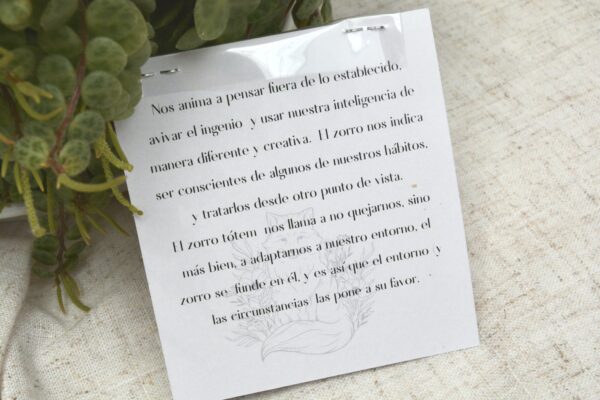 Nos anima a pensar fuera de lo establecido,
avivar el ingenio y usar nuestra inteligencia de
manera diferente y creativa. El zorro nos indica
ser conscientes de algunos de nuestros hábitos,
y tratarlos desde otro punto de vista.
El zorro tótem nos llama a no quejarnos, sino
más bien, a adaptarnos a nuestro entorno, el
zorro se funde en él, y es así que el entorno y
las circunstancias las pone a su favor.